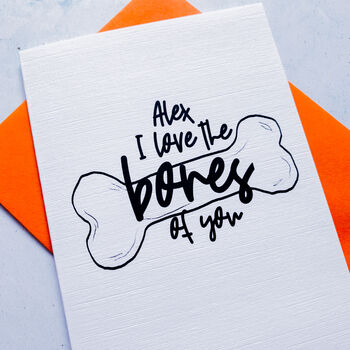 Alex
I love the
bones
of you